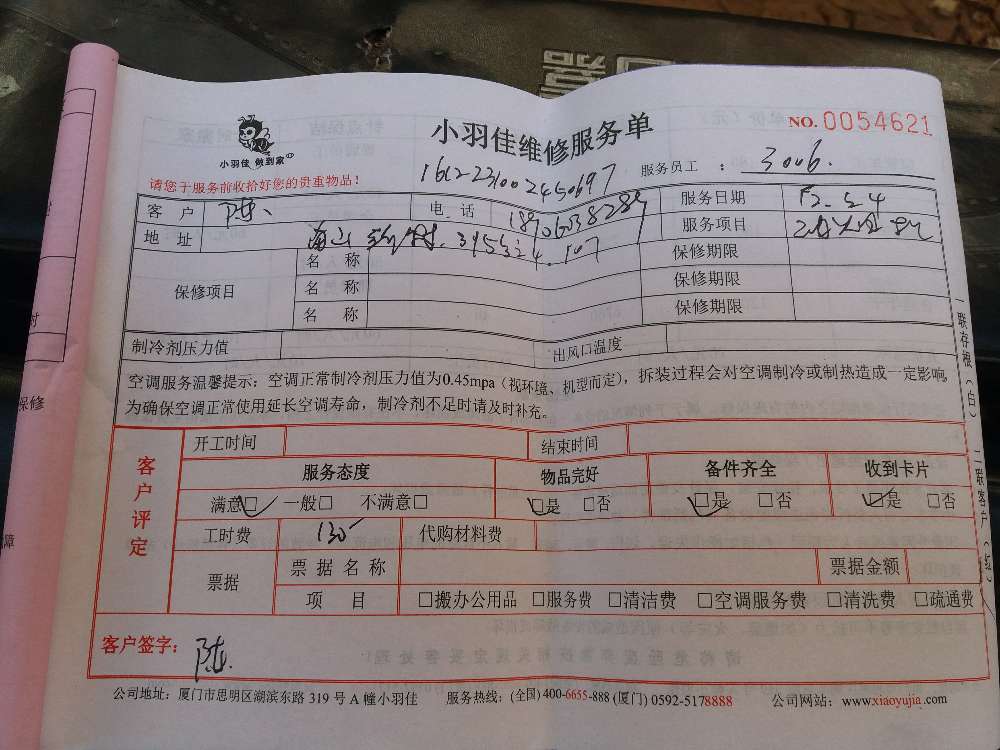 小羽佳 做到家
小羽佳维修服务单
NO.0054621
请您于服务前收拾好您的贵重物品！
服务员工：3006.
客户 陆 电话 服务日期 12.24
地址 服务项目
保修项目 名称 保修期限
名称 保修期限
名称 保修期限
制冷剂压力值 出风口温度
空调服务温馨提示：空调正常制冷剂压力值为0.45mpa（视环境、机型而定），拆装过程会对空调制冷或制热造成一定影响，
为确保空调正常使用延长空调寿命，制冷剂不足时请及时补充。
客户评定
开工时间 结束时间
服务态度 物品完好 备件齐全 收到卡片
满意☑ 一般□ 不满意□ ☑是 □否 ☑是 □否 ☑是 □否
工时费 130 代购材料费
票据 票据名称 票据金额
项目 □搬办公用品 □服务费 □清洁费 □空调服务费 □清洗费 □疏通费
客户签字：陆
公司地址：厦门市思明区湖滨东路 319 号 A 幢小羽佳 服务热线：(全国) 400-6655-888 (厦门) 0592-5178888 公司网站：www.xiaoyujia.com
一联存根（白） 二联客户（红）
保修